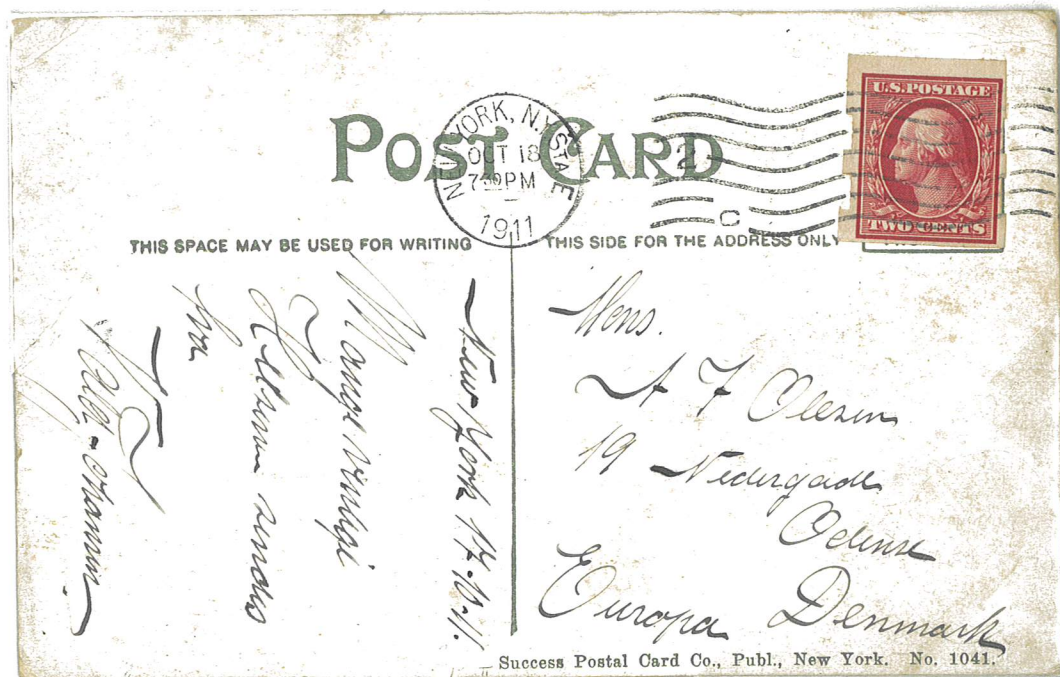 POST CARD
NEW YORK, N.Y. STA E
OCT 18
7 30 PM
1911
2
C
U.S. POSTAGE
TWO CENTS
THIS SPACE MAY BE USED FOR WRITING
THIS SIDE FOR THE ADDRESS ONLY
New York 17.10.11.
Mange venlige
Hilsener sendes
fra
Mons.
A F Olesen
19 Nedergade
Odense
Europa Denmark
Success Postal Card Co., Publ., New York. No. 1041.